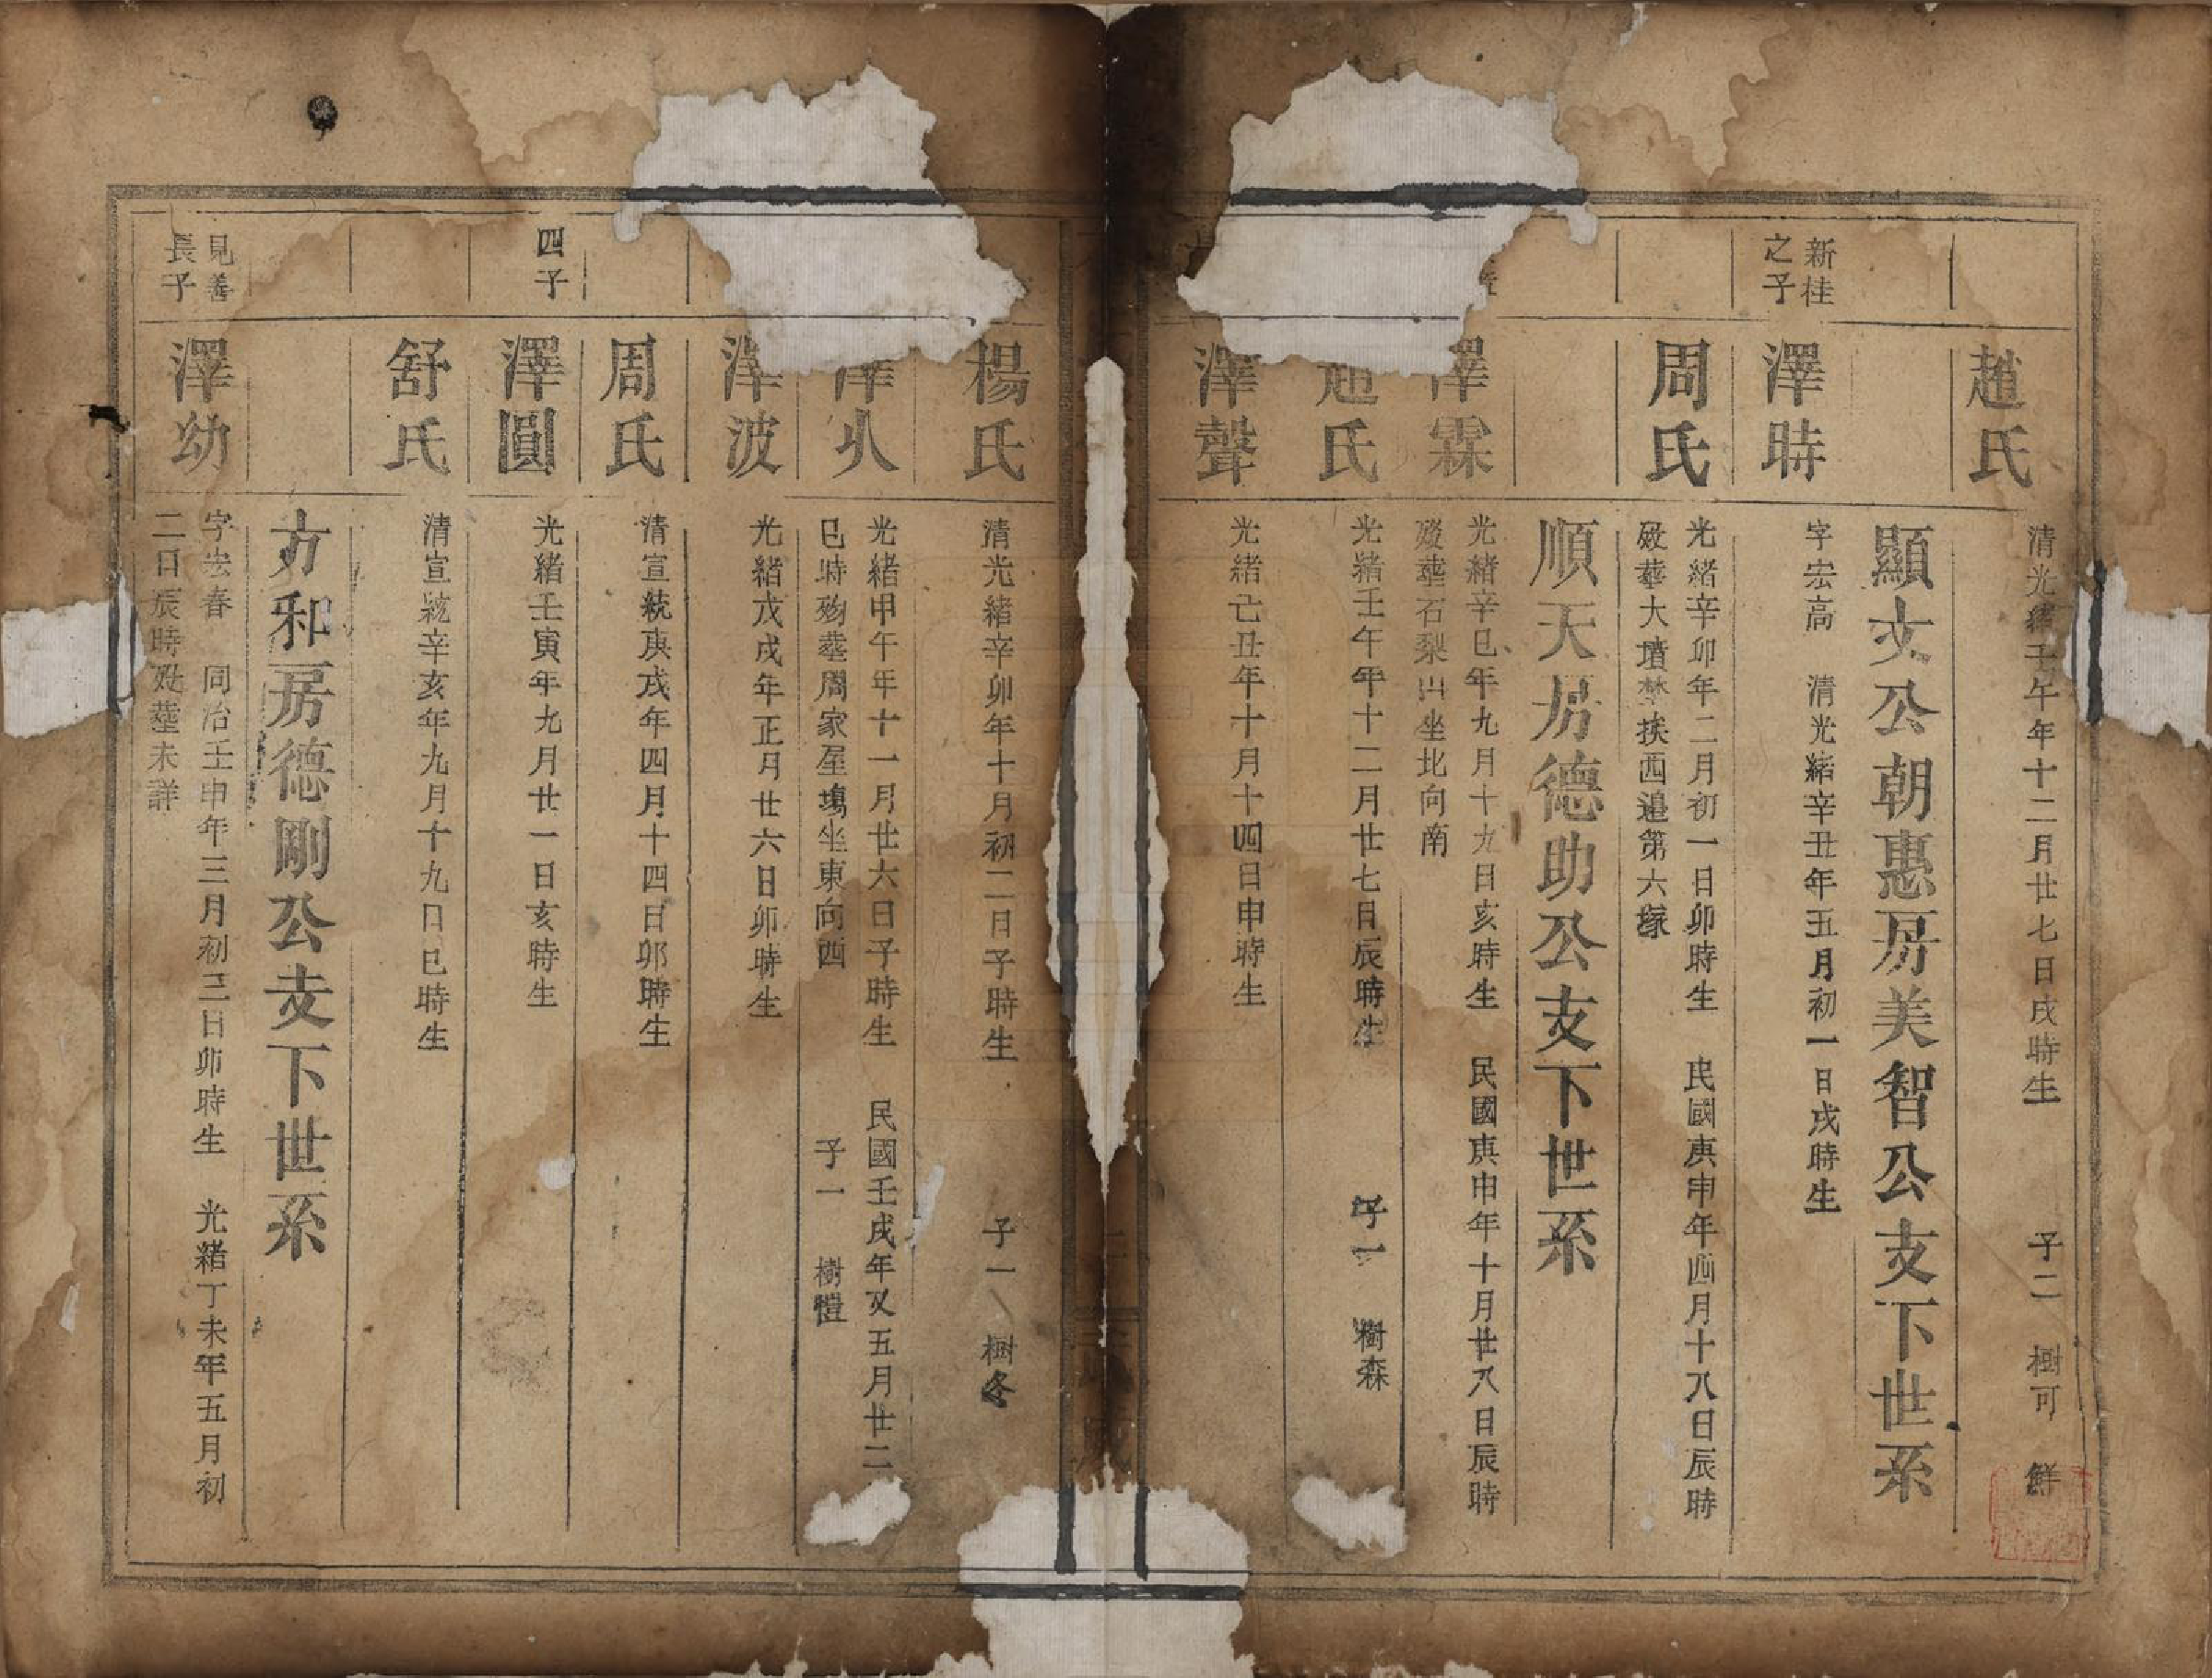 趙氏
清光緒壬午年十二月廿七日戌時生 子二 樹可 鮮
顯文公朝惠房美智公支下世系
新桂之子
澤時
字宏高 清光緒辛丑年五月初一日戌時生
周氏
光緒辛卯年二月初一日卯時生 民國庚申年四月十八日辰時
歿葬大墳林挨西邊第六塚
順天房德助公支下世系
澤霖
光緒辛巳年九月十九日亥時生 民國庚申年十月廿八日辰時
歿葬石梨山坐北向南
趙氏
光緒壬午年十二月廿七日辰時生 子一 樹森
澤聲
光緒己丑年十月十四日申時生
楊氏
清光緒辛卯年十月初二日子時生 子一 樹冬
澤火
光緒甲午年十一月廿六日子時生 民國壬戌年又五月廿二
巳時歿葬周家屋塲坐東向西 子一 樹愷
澤波
光緒戊戌年正月廿六日卯時生
周氏
清宣統庚戌年四月十四日卯時生
四子
澤圓
光緒壬寅年九月廿一日亥時生
舒氏
清宣統辛亥年九月十九日巳時生
方和房德剛公支下世系
見善長子
澤幼
字宏春 同治壬申年三月初三日卯時生 光緒丁未年五月初
二日辰時歿葬未詳